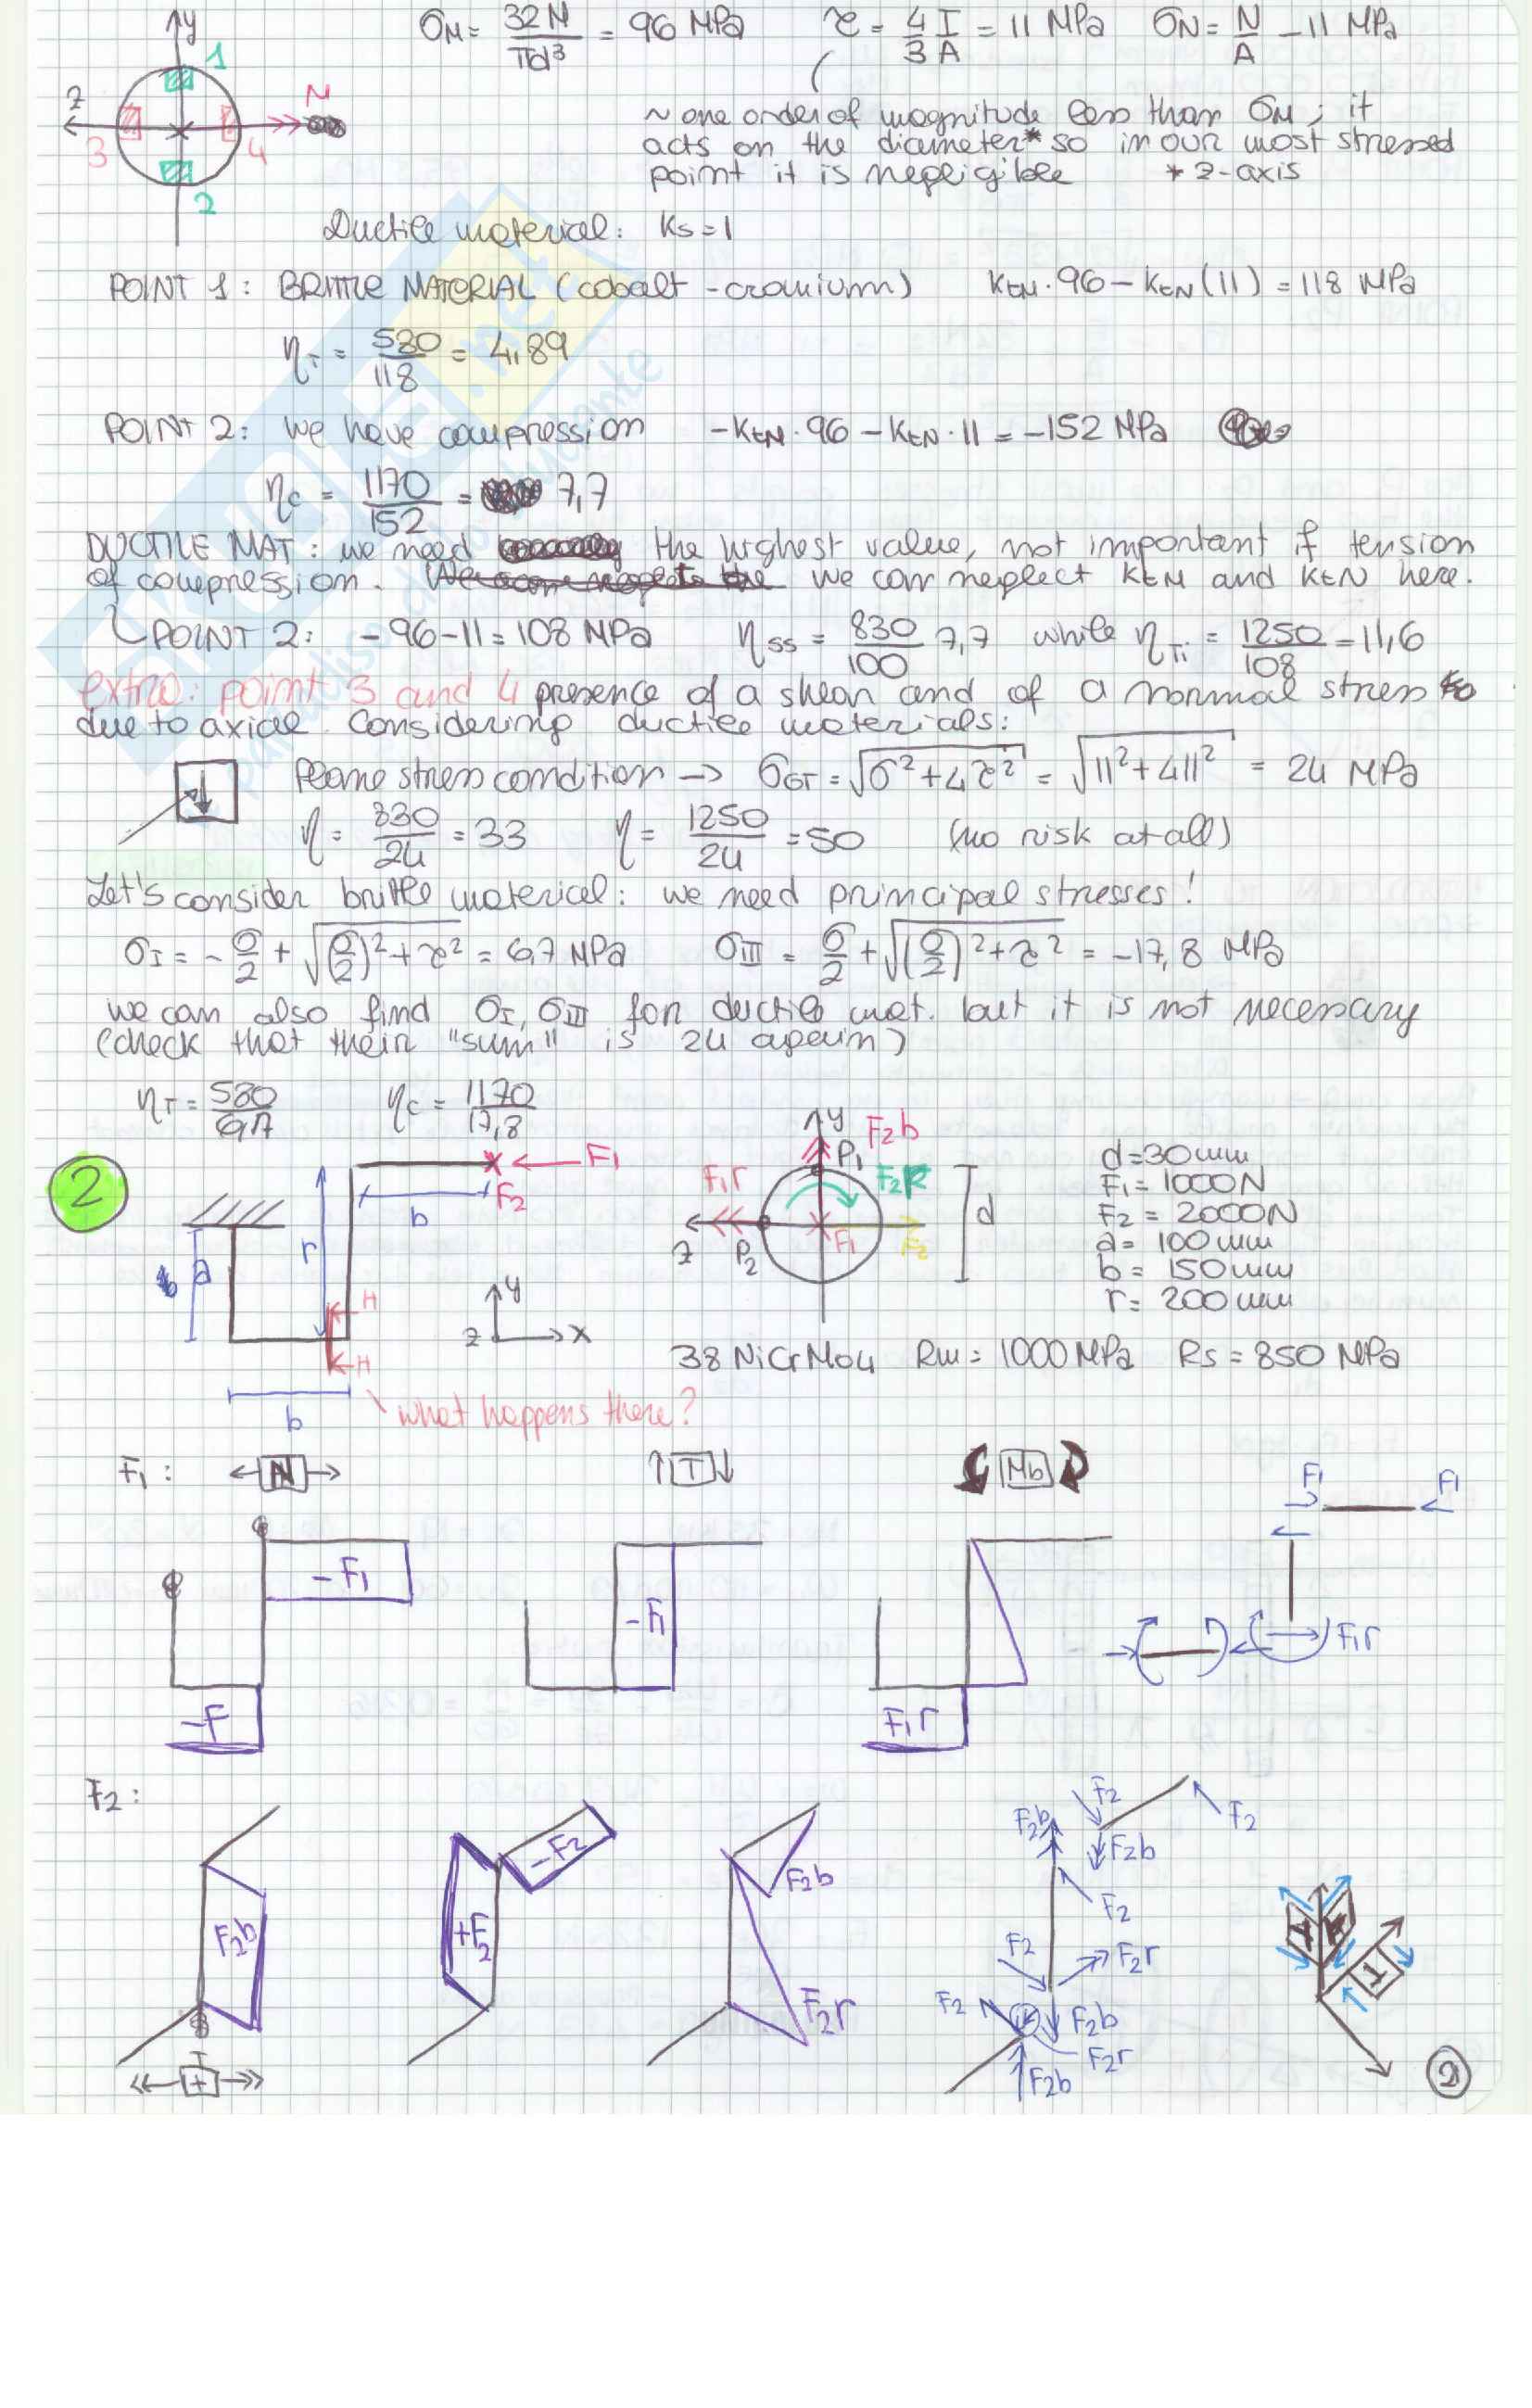 y
σM = 32M / πd³ = 96 MPa τ = 4/3 T/A = 11 MPa σN = N/A -11 MPa
1
z M
3 4
2
~ one order of magnitude less than σM; it
acts on the diameter* so in our most stressed
point it is negligible * z-axis
Ductile material: Ks=1
POINT 1: BRITTLE MATERIAL (cobalt-cromium) KtM·96 - KtN (11) = 118 MPa
ηT = 580/118 = 4,89
POINT 2: we have compression -KtM·96 - KtN·11 = -152 MPa
ηc = 1170/152 = 7,7
DUCTILE MAT: we need the highest value, not important if tension
of compression. we can neglect KtM and KtN here.
POINT 2: -96-11 = 108 MPa ηss = 830/100 7,7 while ηTi = 1250/108 = 11,6
extra: point 3 and 4 presence of a shear and of a normal stress
due to axial. Considering ductile materials:
Plane stress condition → σGT = √σ²+4τ² = √11²+4 11² = 24 MPa
η = 830/24 = 33 η = 1250/24 = 50 (no risk at all)
Let's consider brittle material: we need principal stresses!
σI = -σ/2 + √(σ/2)²+τ² = 6,7 MPa σIII = σ/2 + √(σ/2)²+τ² = -17,8 MPa
we can also find σI, σIII for ductile mat. but it is not necessary
(check that their "sum" is 24 again)
ηT = 580/6,7 ηc = 1170/17,8
2
F1
F2
b
a
r
H
H
b
y
z x
what happens there?
y F2b
P1
F1r F2r
z P2 F1 F2
d
d=30mm
F1=1000N
F2=2000N
a=100mm
b=150mm
r=200mm
38NiCrMo4 Rm=1000MPa Rs=850MPa
F1: N T Mb
F1 F1
-F1 -F1 F1r
-F F1r
F2:
F2b +F2 -F2 F2b F2r
F2b F2 F2
F2b
F2
F2 F2r
F2 F2b
F2r
F2b
T
+
2